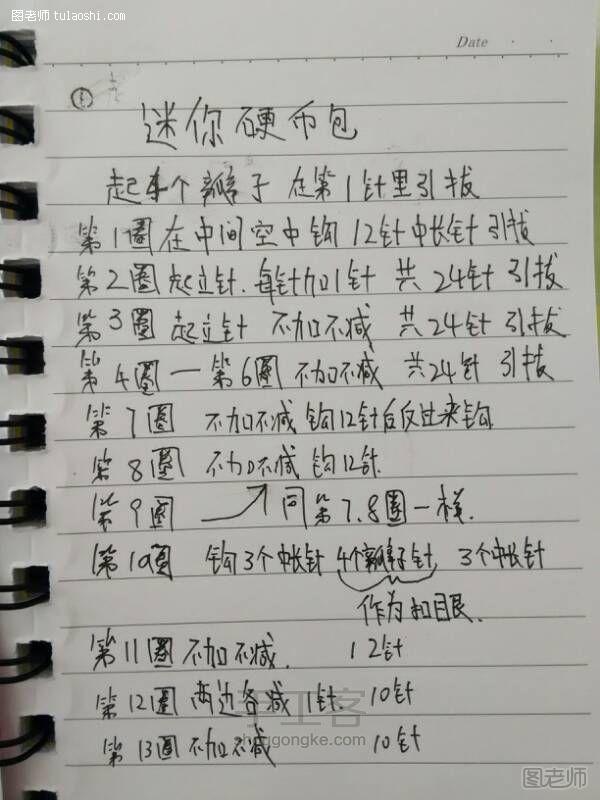 图老师 tulaoshi.com
Date
迷你硬币包
起 个辫子 在第1针里引拔
第1圈在中间空中钩12针中长针引拔
第2圈起立针.每针加1针 共24针引拔
第3圈起立针 不加不减 共24针引拔
第4圈—第6圈不加不减 共24针 引拔
第7圈 不加不减钩12针后反过来钩
第8圈 不加不减 钩12针
第9圈 同第7.8圈一样.
第10圈 钩3个中长针 4个辫子针 3个中长针
作为扣眼.
第11圈不加不减. 12针
第12圈 两边各减1针. 10针
第13圈不加不减 10针
手工客
shougongke.com
图老师